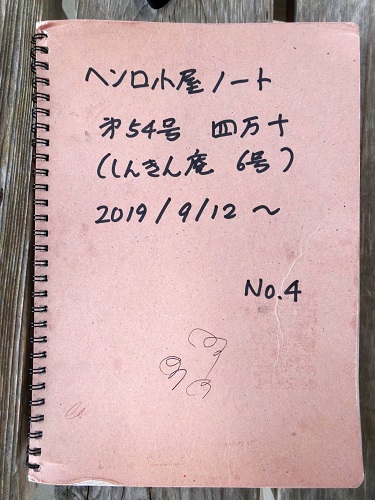 ヘンロ小屋ノート
第54号 四万十
(しんきん庵 6号)
2019/9/12～
No.4